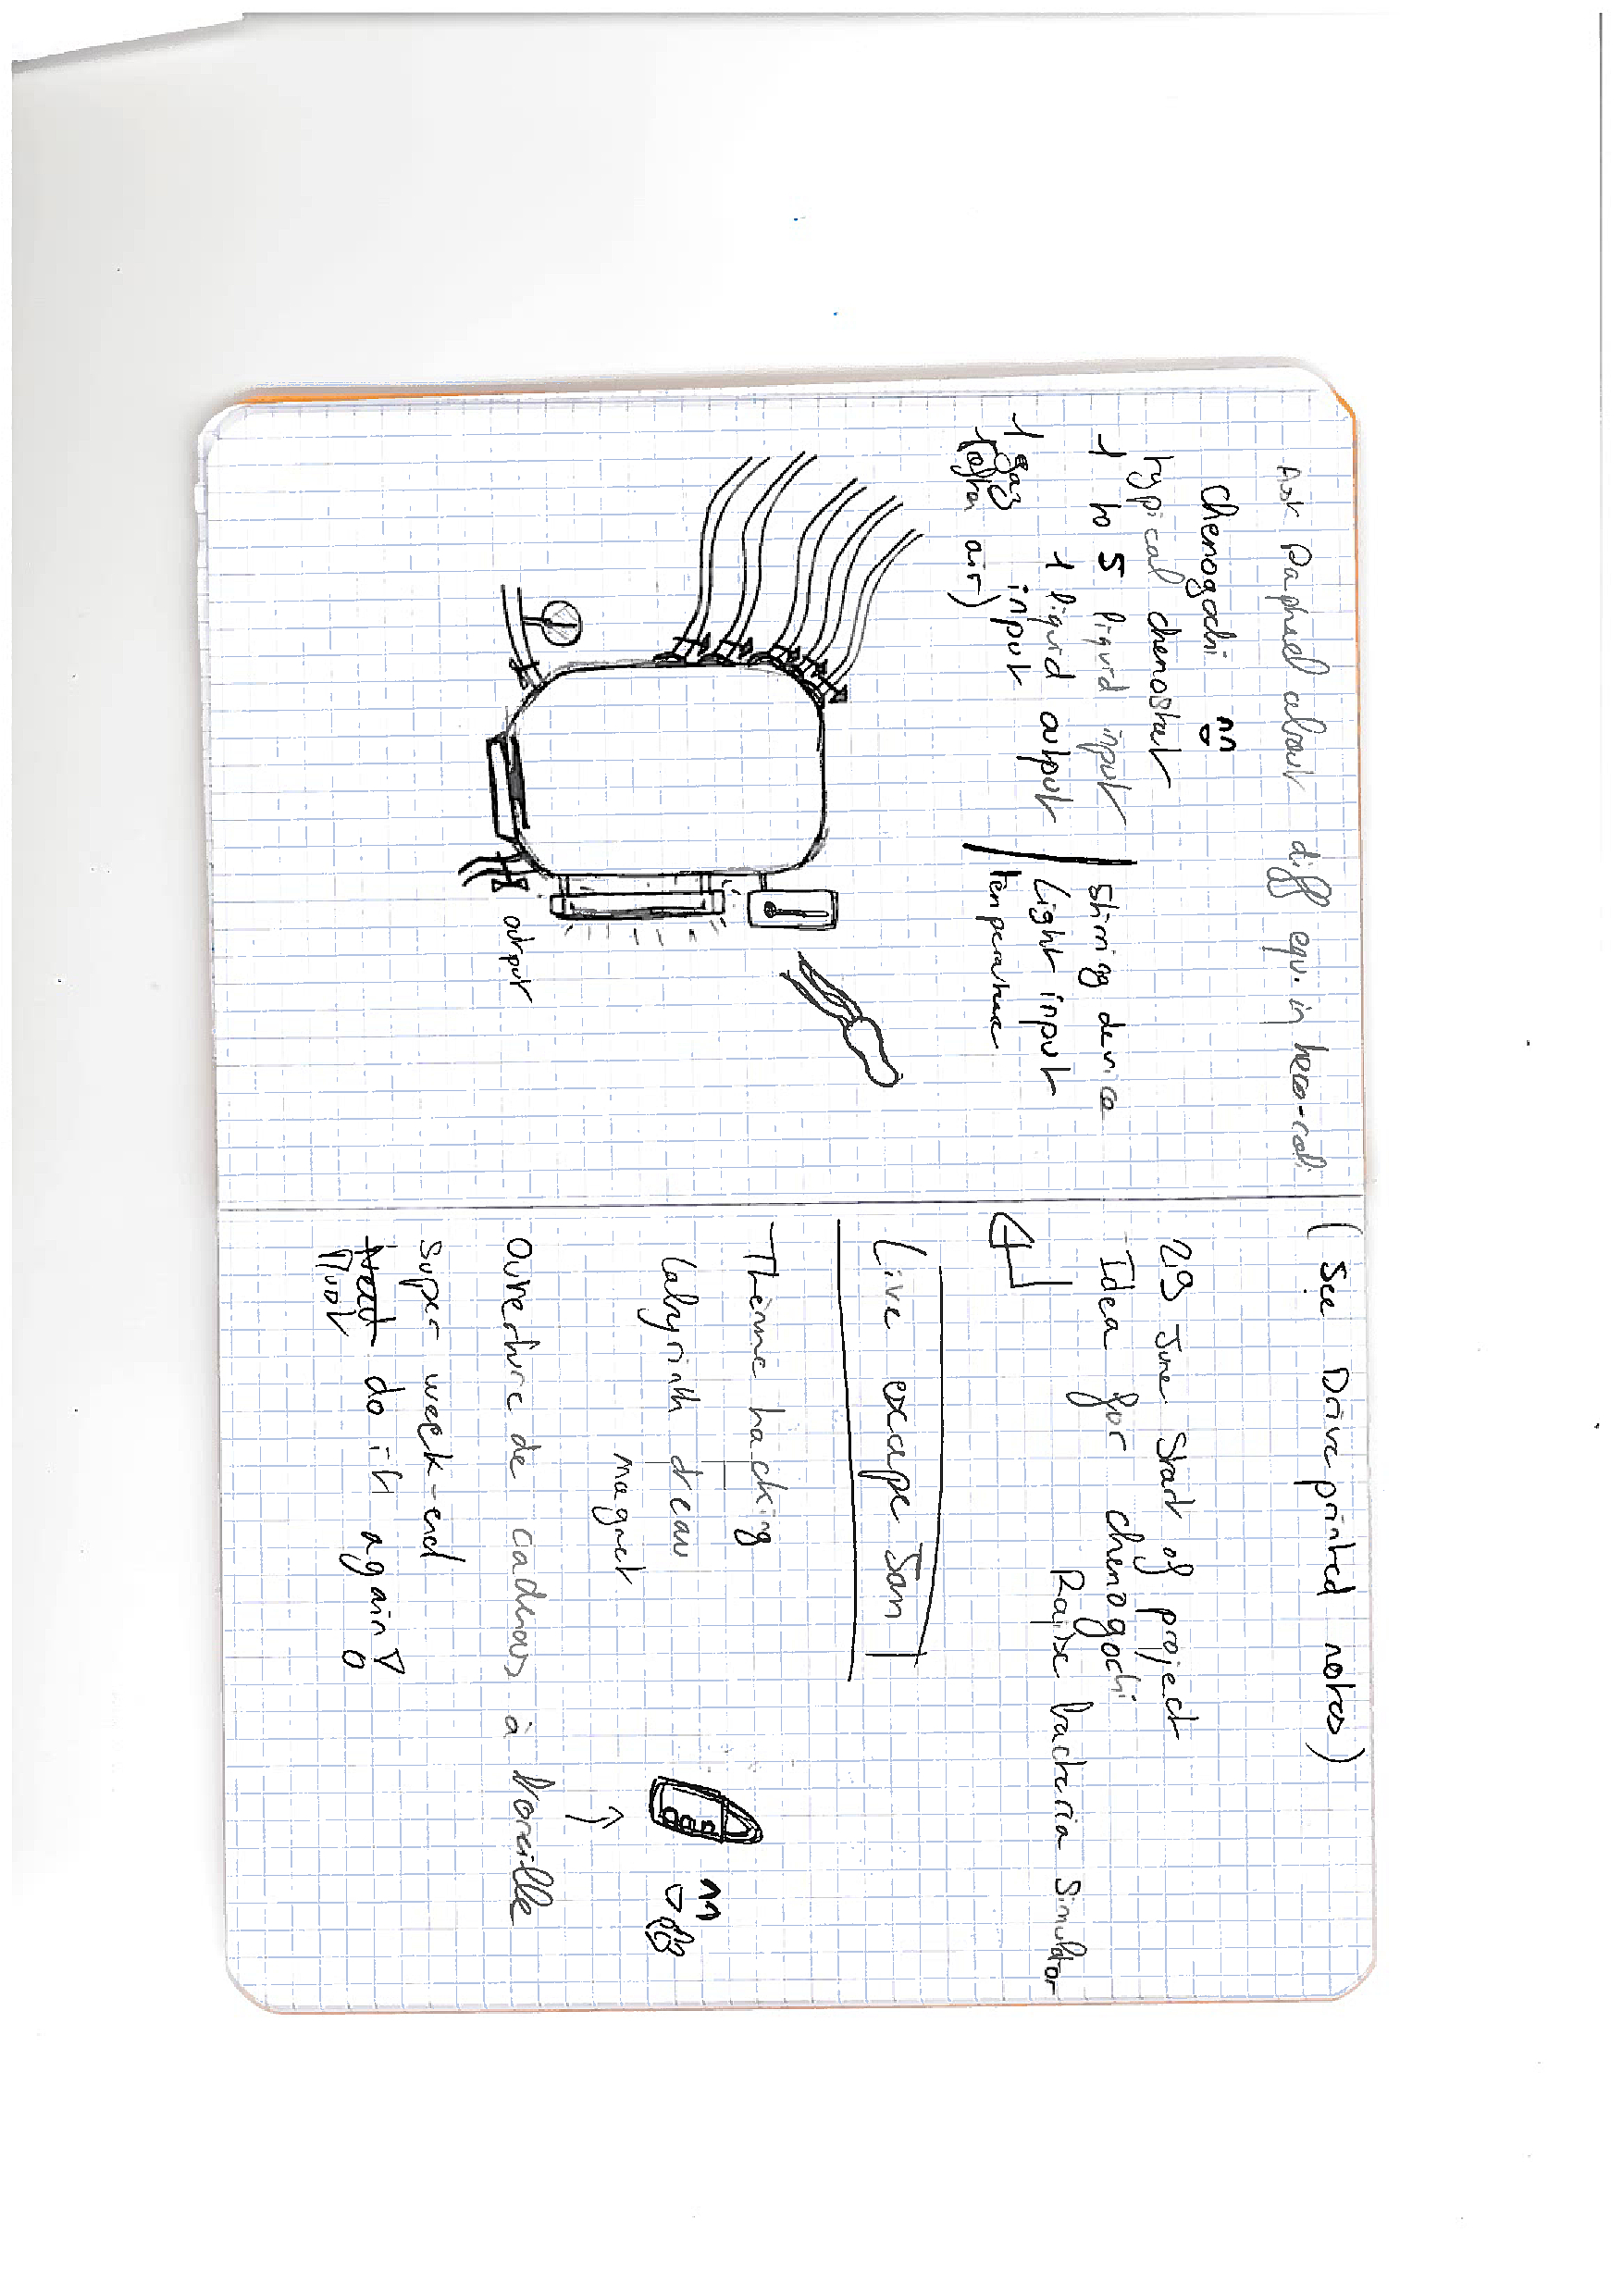 Ask Raphael about diff equ. in hero-coli
Chemogochi
typical chemostat
1 to 5 liquid input
1 liquid output
1 gaz input
(often air)
Stirring device
Light input
temperature
output
(See Drive printed notes)
29 June Start of project
-Idea for chemogochi
Raise bacteria Simulator
Live excape Jam
Theme hacking
Labyrinth dream
magnet
Ouverture de cadenas à l'oreille
Super week-end
Must do it again !